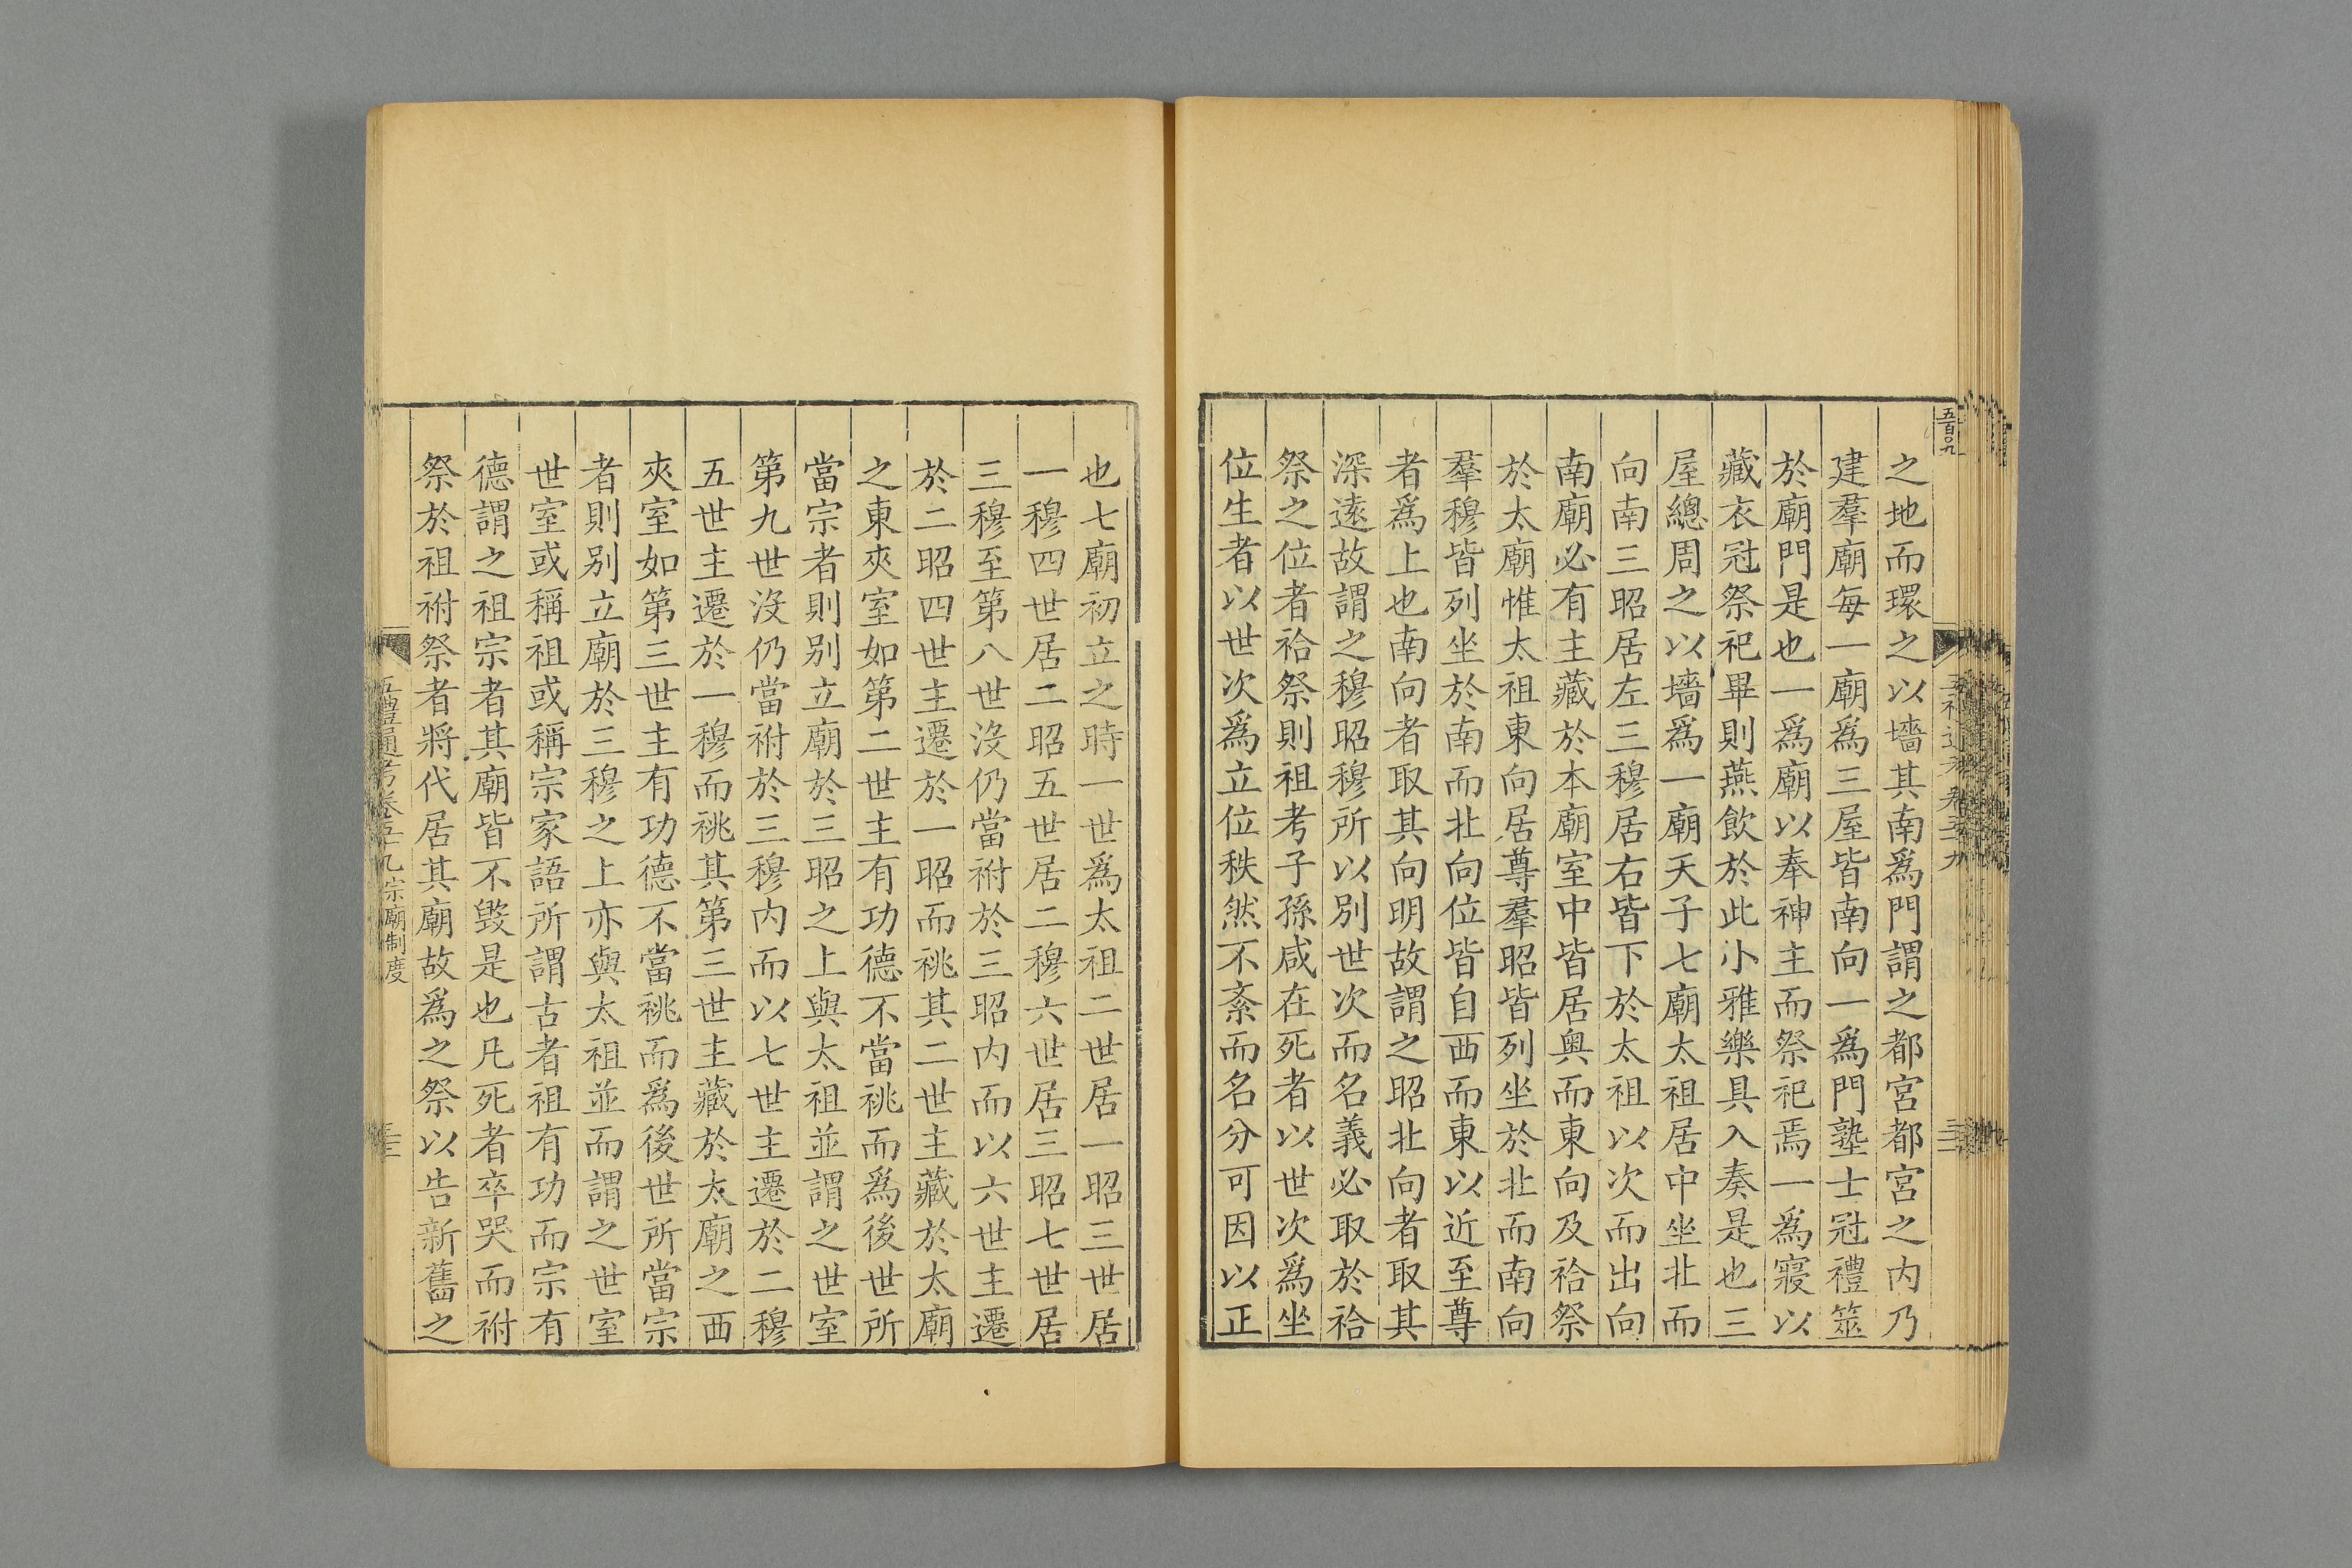 之地而環之以墻其南爲門謂之都宮都宮之内乃
建羣廟每一廟爲三屋皆南向一爲門塾士冠禮筮
於廟門是也一爲廟以奉神主而祭祀焉一爲寢以
藏衣冠祭祀畢則燕飲於此小雅樂具入奏是也三
屋總周之以墻爲一廟天子七廟太祖居中坐北而
向南三昭居左三穆居右皆下於太祖以次而出向
南廟必有主藏於本廟室中皆居奧而東向及祫祭
於太廟惟太祖東向居尊羣昭皆列坐於北而南向
羣穆皆列坐於南而北向位皆自西而東以近至尊
者爲上也南向者取其向明故謂之昭北向者取其
深遠故謂之穆昭穆所以別世次而名義必取於祫
祭之位者祫祭則祖考子孫咸在死者以世次爲坐
位生者以世次爲立位秩然不紊而名分可因以正
也七廟初立之時一世爲太祖二世居一昭三世居
一穆四世居二昭五世居二穆六世居三昭七世居
三穆至第八世沒仍當祔於三昭内而以六世主遷
於二昭四世主遷於一昭而祧其二世主藏於太廟
之東夾室如第二世主有功德不當祧而爲後世所
當宗者則別立廟於三昭之上與太祖並謂之世室
第九世沒仍當祔於三穆内而以七世主遷於二穆
五世主遷於一穆而祧其第三世主藏於太廟之西
夾室如第三世主有功德不當祧而爲後世所當宗
者則別立廟於三穆之上亦與太祖並而謂之世室
世室或稱祖或稱宗家語所謂古者祖有功而宗有
德謂之祖宗者其廟皆不毀是也凡死者卒哭而祔
祭於祖祔祭者將代居其廟故爲之祭以告新舊之
五禮通考卷五十九宗廟制度